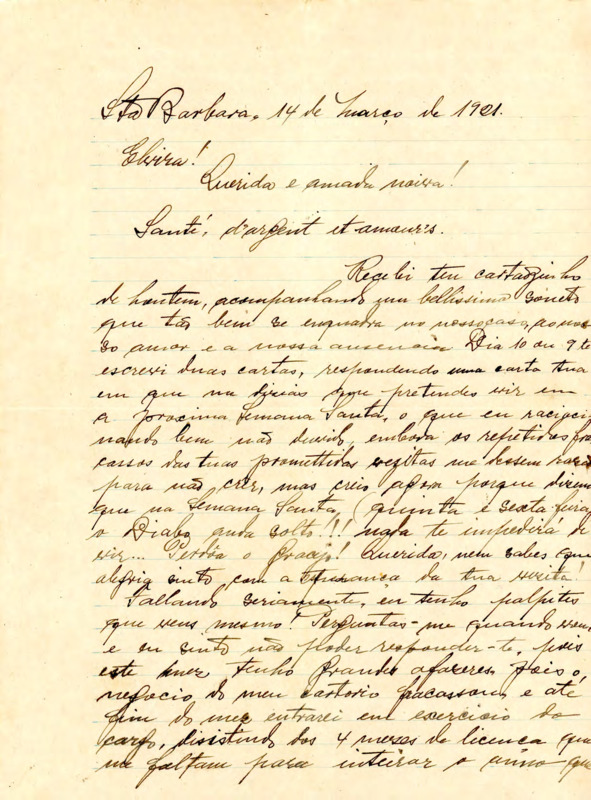 Sta Barbara, 14 de Março de 1921.
Elvira!
Querida e amada noiva!
Santé, d'argent et amours.
Recebi teu cartãozinho
de hontem, acompanhando um bellissimo soneto
que tão bem se enquadra no nosso caso, ao nos-
so amor e a nossa ausencia Dia 10 ou 9 te
escrevi duas cartas, respondendo uma carta tua
em que me dizias que pretendes vir em
a proxima Semana Santa, o que eu racioci-
nando bem não duvido, embora os repetidos fra-
cassos das tuas promettidas vezitas me dessem razão
para não crer, mas creio agora porque dizem
que na Semana Santa, (quinta e sexta feira)
o Diabo anda solto!!! nada te impedirá de
vir... Perdôa o gracejo! Querida, nem sabes que
alegria sinto, com a esperança da tua vezita!
Fallando seriamente, eu tenho palpites
que vens mesmo! Perguntas-me quando irei
e eu sinto não poder responder-te, pois
este mez tenho grandes afazeres, pois o
negocio do meu cartorio fracassou, e até
fim do mez entrarei em exercicio do
cargo, disistindo dos 4 mezes de licença que
me faltam para inteirar o anno que